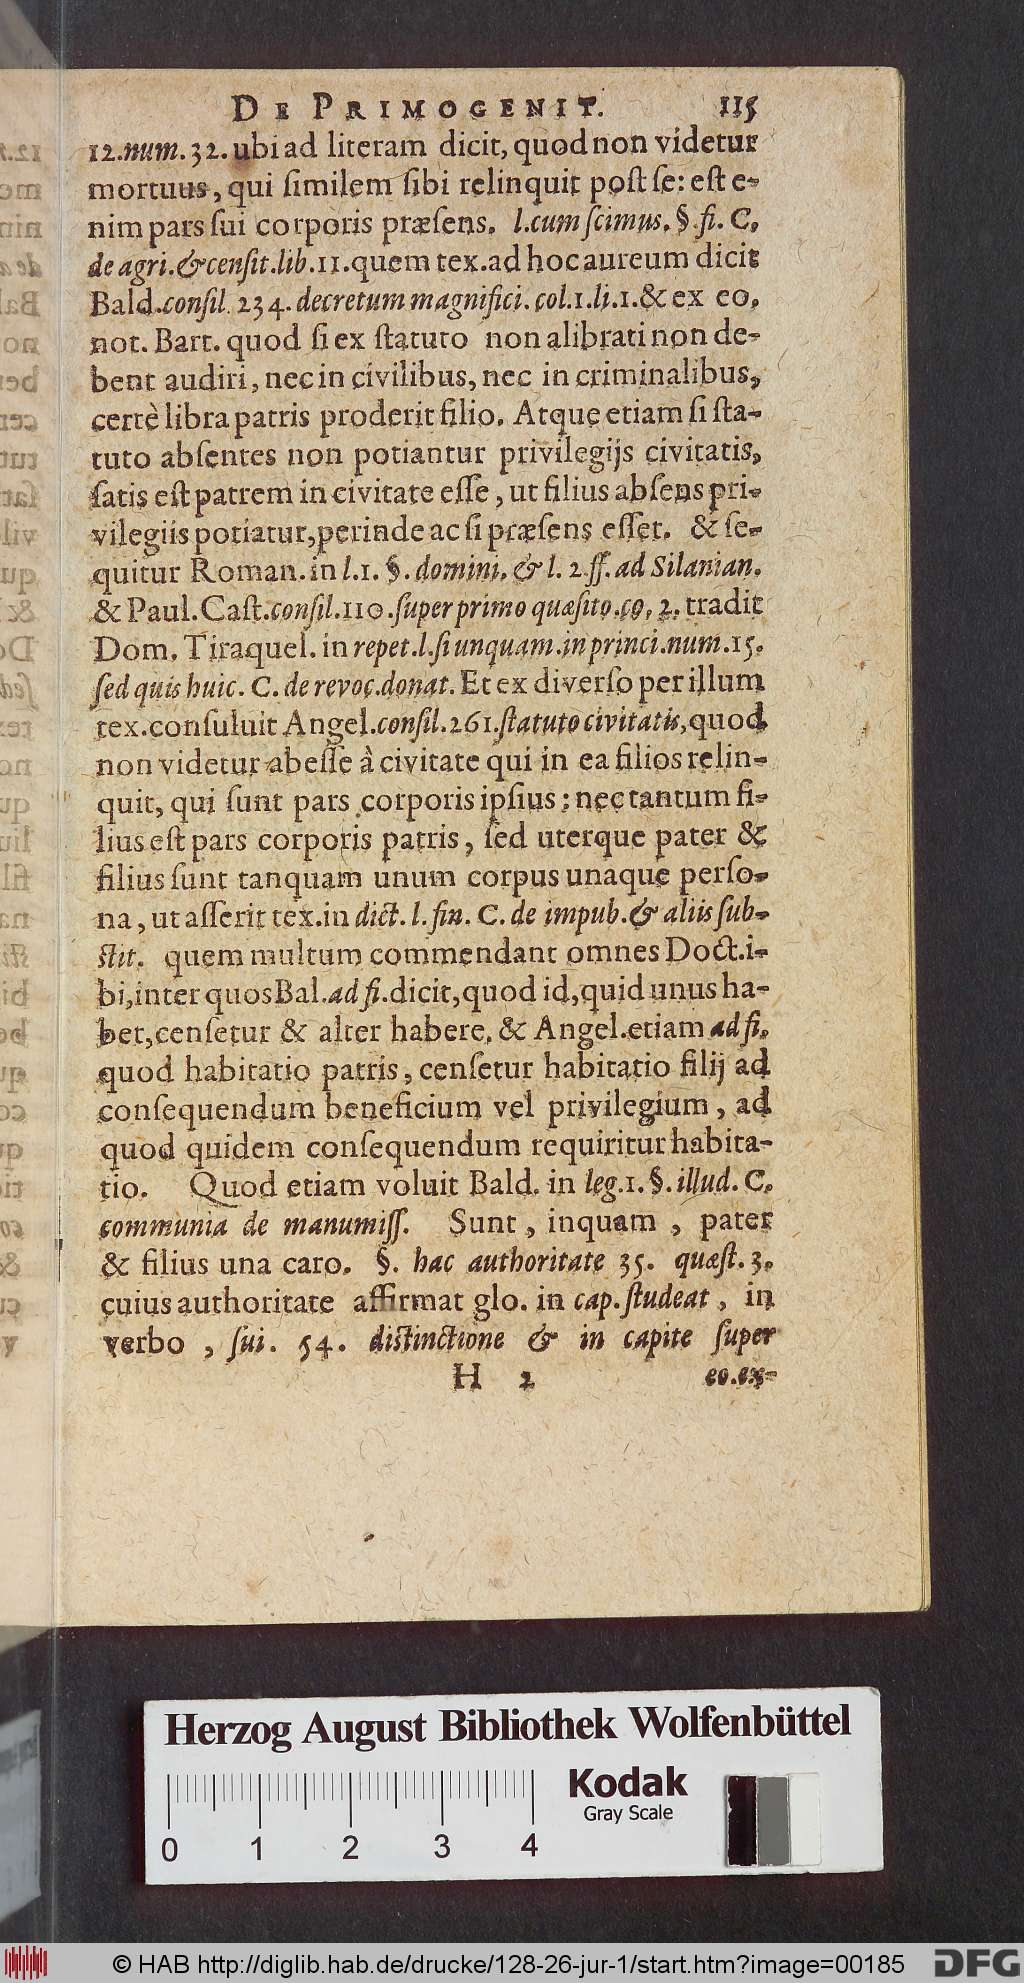 DE PRIMOGENIT. 115
12.num.32. ubi ad literam dicit, quod non videtur
mortuus, qui ſimilem ſibi relinquit poſt ſe: eſt e-
nim pars ſui corporis præſens. l.cum ſcimus. §. fi. C.
de agri. & cenſit. lib. 11. quem tex. ad hoc aureum dicit
Bald. conſil. 234. decretum magnifici. col. 1. li. 1. & ex eo,
not. Bart. quod ſi ex ſtatuto non alibrati non de-
bent audiri, nec in civilibus, nec in criminalibus,
certè libra patris proderit filio. Atque etiam ſi ſta-
tuto abſentes non potiantur privilegijs civitatis,
ſatis eſt patrem in civitate eſſe, ut filius abſens pri-
vilegiis potiatur, perinde ac ſi præſens eſſet. & ſe-
quitur Roman. in l. 1. §. domini. & l. 2. ff. ad Silanian.
& Paul. Caſt. conſil. 110. ſuper primo quæſito. co. 2. tradit
Dom. Tiraquel. in repet. l. ſi unquam. in princi. num. 15.
ſed quis huic. C. de revoc. donat. Et ex diverſo per illum
tex. conſuluit Angel. conſil. 261. ſtatuto civitatis, quod
non videtur abeſſe à civitate qui in ea filios relin-
quit, qui ſunt pars corporis ipſius; nec tantum fi-
lius eſt pars corporis patris, ſed uterque pater &
filius ſunt tanquam unum corpus unaque perſo-
na, ut aſſerit tex. in dict. l. fin. C. de impub. & aliis ſub-
ſtit. quem multum commendant omnes Doct. i-
bi, inter quos Bal. ad fi. dicit, quod id, quid unus ha-
bet, cenſetur & alter habere, & Angel. etiam ad fi.
quod habitatio patris, cenſetur habitatio filij ad
conſequendum beneficium vel privilegium, ad
quod quidem conſequendum requiritur habita-
tio. Quod etiam voluit Bald. in leg. 1. §. illud. C.
communia de manumiſſ. Sunt, inquam, pater
& filius una caro. §. hac authoritate 35. quæſt. 3.
cuius authoritate affirmat glo. in cap. ſtudeat, in
verbo, ſui. 54. diſtinctione & in capite ſuper
H 2 eo. ex-
Herzog August Bibliothek Wolfenbüttel
Kodak
Gray Scale
0 1 2 3 4
© HAB http://diglib.hab.de/drucke/128-26-jur-1/start.htm?image=00185
DFG